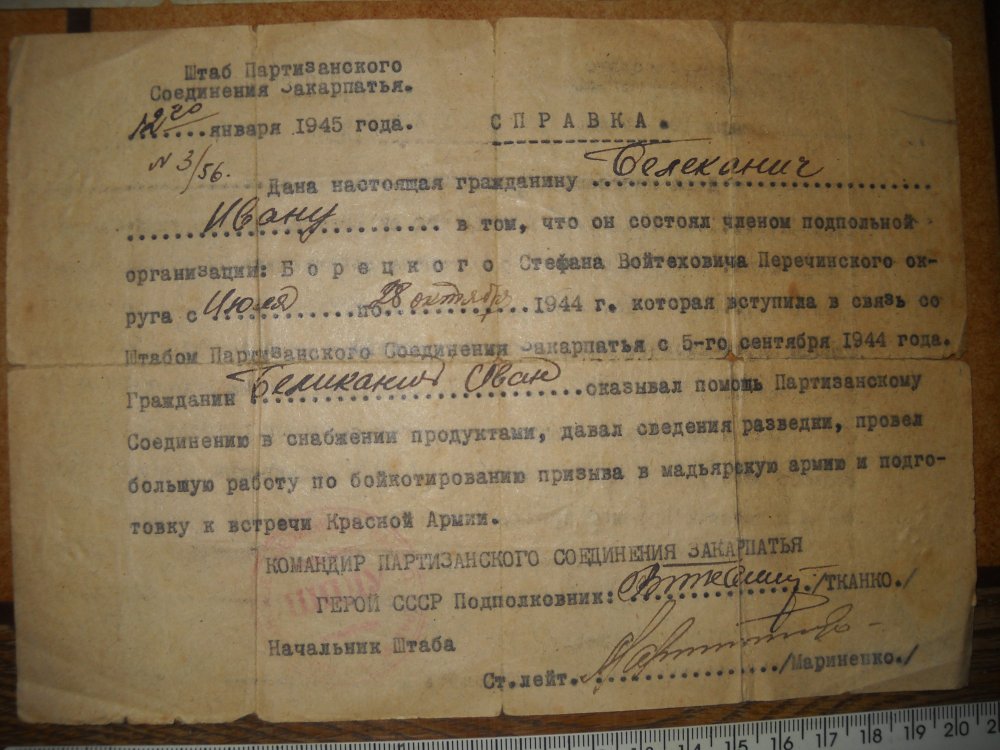 Штаб Партизанского
Соединения Закарпатья.
12го января 1945 года.
СПРАВКА.
N 3/56.
Дана настоящая гражданину Белеканич
Ивану в том, что он состоял членом подпольной
организации: Борецкого Стефана Войтеховича Перечинского ок-
руга с Июля по 28 октября 1944 г. которая вступила в связь со
Штабом Партизанского Соединения Закарпатья с 5-го сентября 1944 года.
Гражданин Беликанич Иван оказывал помощь Партизанскому
Соединению в снабжении продуктами, давал сведения разведки, провел
большую работу по бойкотированию призыва в мадьярскую армию и подго-
товку к встречи Красной Армии.
КОМАНДИР ПАРТИЗАНСКОГО СОЕДИНЕНИЯ ЗАКАРПАТЬЯ
ГЕРОЙ СССР Подполковник: /ТКАНКО./
Начальник Штаба
Ст.лейт. /Мариненко./
13 14 15 16 17 18 19 20